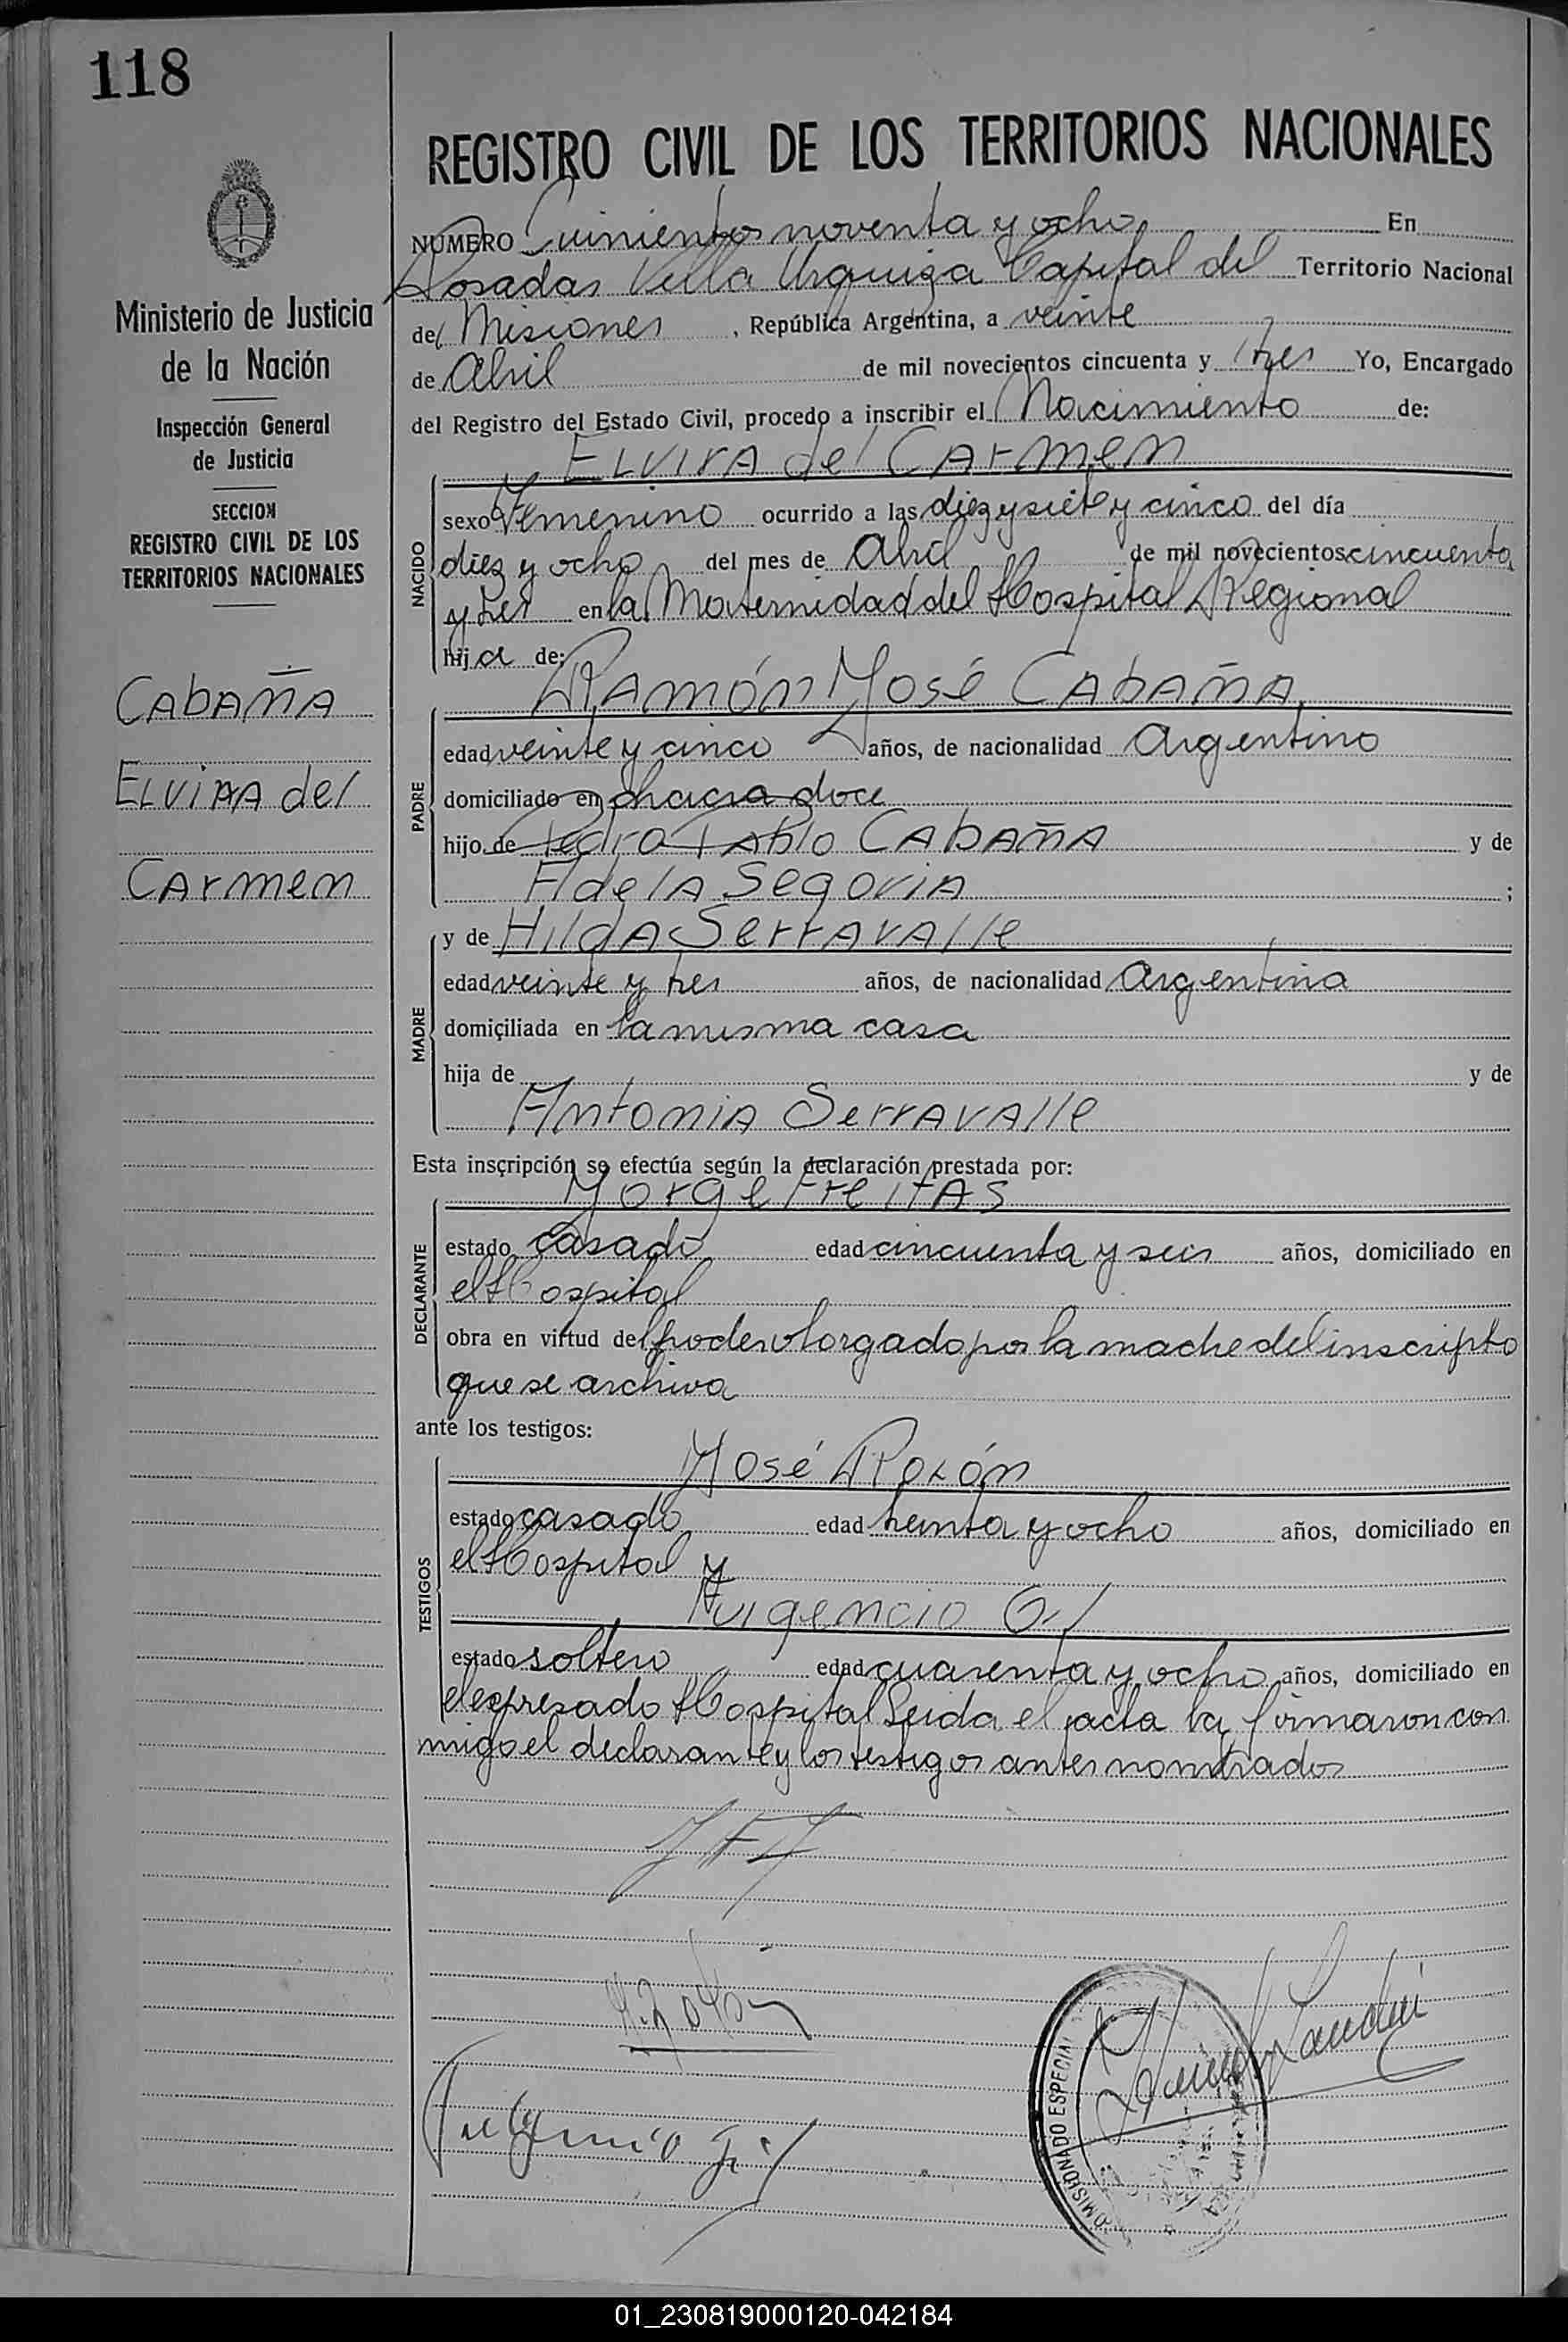 118
REGISTRO CIVIL DE LOS TERRITORIOS NACIONALES
Ministerio de Justicia
de la Nación
Inspección General
de Justicia
SECCION
REGISTRO CIVIL DE LOS
TERRITORIOS NACIONALES
Cabaña
Elvira del
Carmen
NUMERO Quinientos noventa y ocho En
Posadas Villa Urquiza Capital del Territorio Nacional
del Misiones, República Argentina, a veinte
de Abril de mil novecientos cincuenta y tres Yo, Encargado
del Registro del Estado Civil, procedo a inscribir el Nacimiento de:
Elvira del Carmen
NACIDO
sexo Femenino ocurrido a las diez y siete y cinco del día
diez y ocho del mes de Abril de mil novecientos cincuenta
y tres en la Maternidad del Hospital Regional
hija de:
Ramón José Cabaña
PADRE
edad veinte y cinco años, de nacionalidad Argentino
domiciliado en chacra doce
hijo de Pedro Pablo Cabaña y de
Adela Segovia ;
MADRE
y de Hilda Serravalle
edad veinte y tres años, de nacionalidad Argentina
domiciliada en la misma casa
hija de y de
Antonia Serravalle
Esta inscripción se efectúa según la declaración prestada por:
Jorge Freitas
DECLARANTE
estado casado edad cincuenta y seis años, domiciliado en
el Hospital
obra en virtud del poder otorgado por la madre del inscripto
que se archiva
ante los testigos:
José Rolón
TESTIGOS
estado casado edad treinta y ocho años, domiciliado en
el Hospital y
Fulgencio Gil
estado soltero edad cuarenta y ocho años, domiciliado en
el expresado Hospital Leida el acta la firmaron con
migo el declarante y los testigos antes nombrados
Fulgencio Gil
COMISIONADO ESPECIAL
01_230819000120-042184